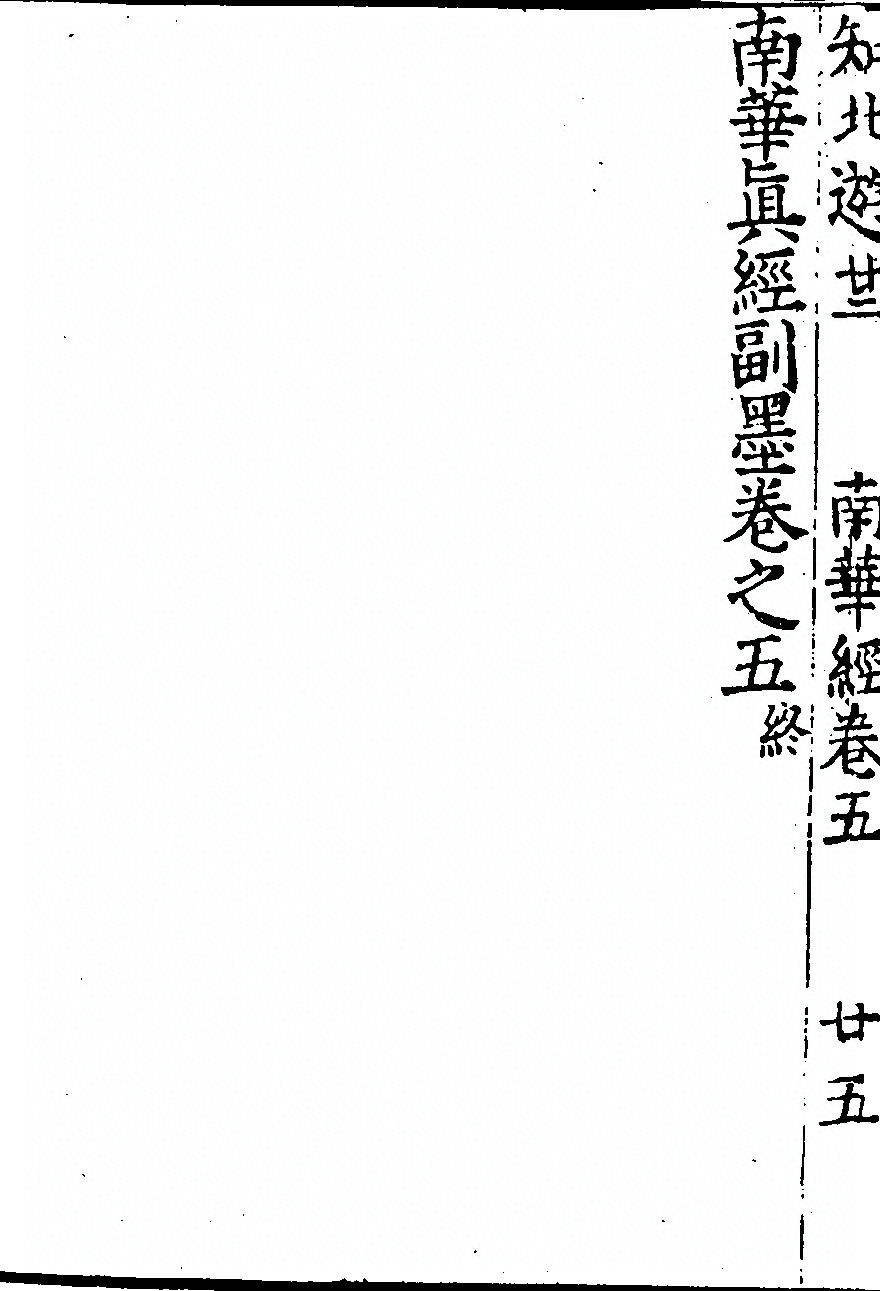 知北遊廿二 南華經卷五 廿五
南華眞經副墨卷之五終